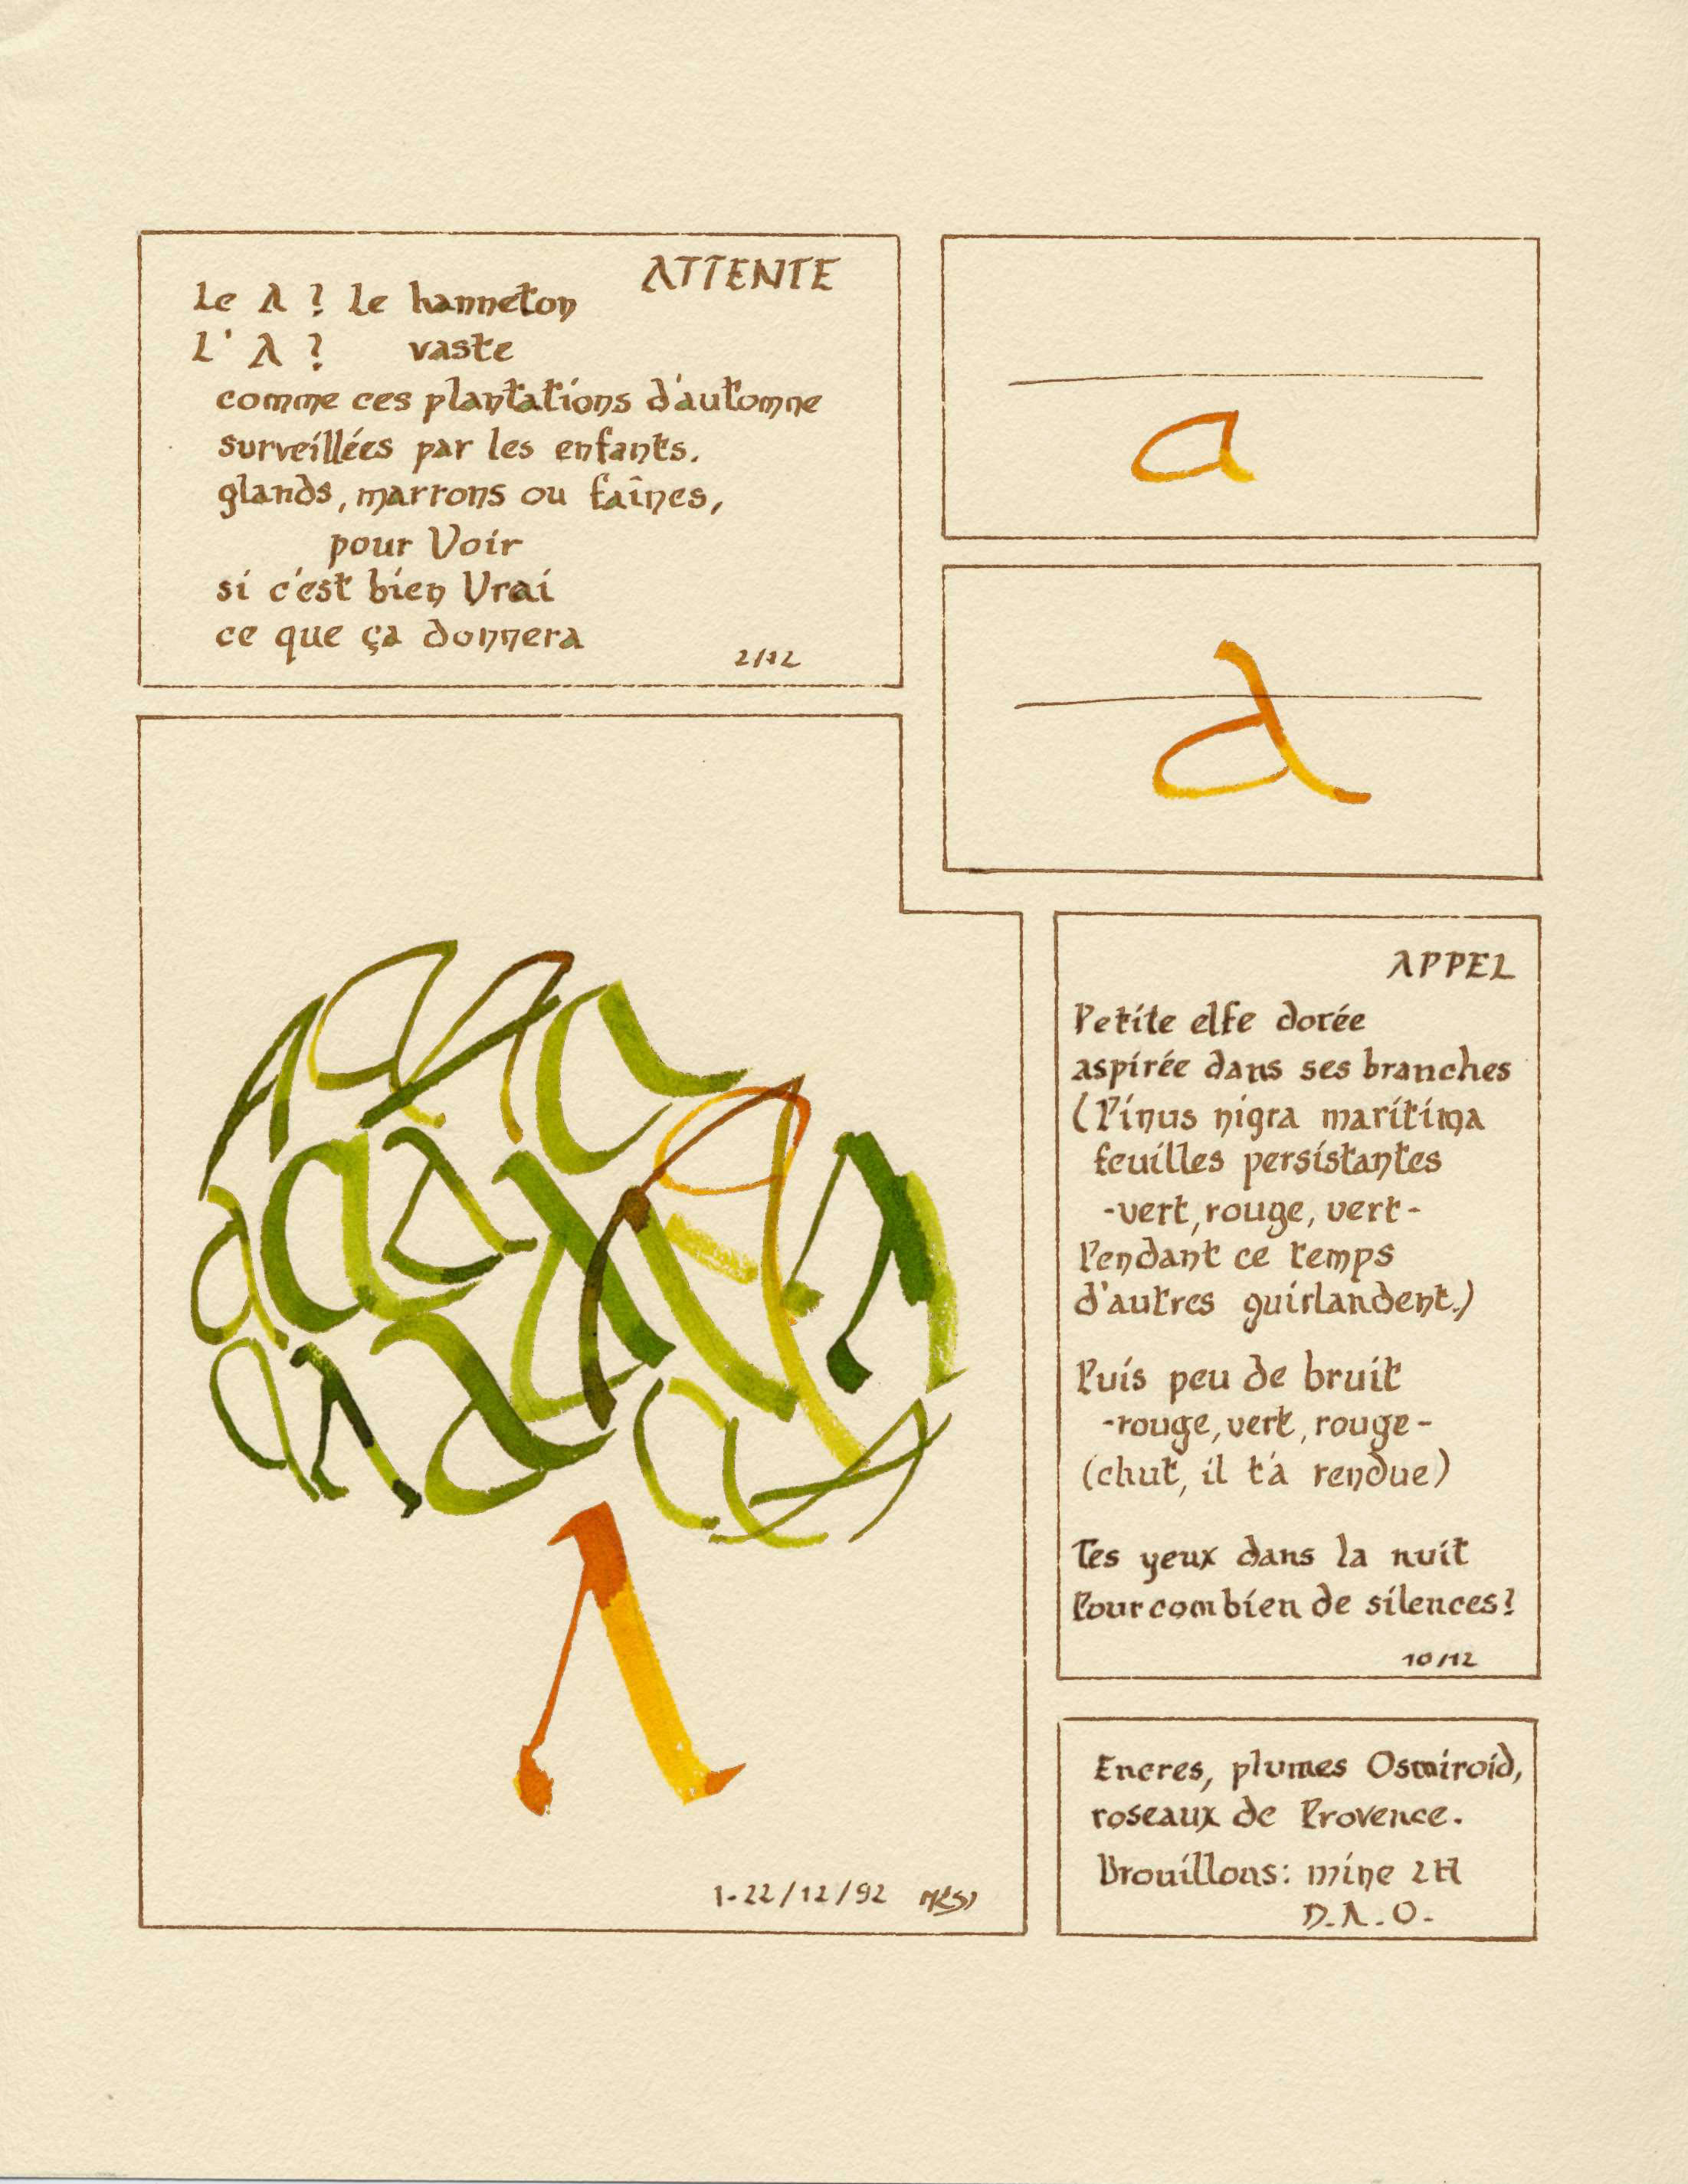 ATTENTE
Le A ? Le hanneton
L' A ? vaste
comme ces plantations d'automne
surveillées par les enfants.
glands, marrons ou faînes,
pour Voir
si c'est bien Vrai
ce que ça donnera
2/12
a
a
1-22/12/92
APPEL
Petite elfe dorée
aspirée dans ses branches
(Pinus nigra maritima
feuilles persistantes
-vert, rouge, vert-
Pendant ce temps
d'autres guirlandent.)
Puis peu de bruit
-rouge, vert, rouge-
(chut, il t'a rendue)
Tes yeux dans la nuit
Pour combien de silences?
10/12
Encres, plumes Osmiroid,
roseaux de Provence.
Brouillons: mine 2H
D.A.O.